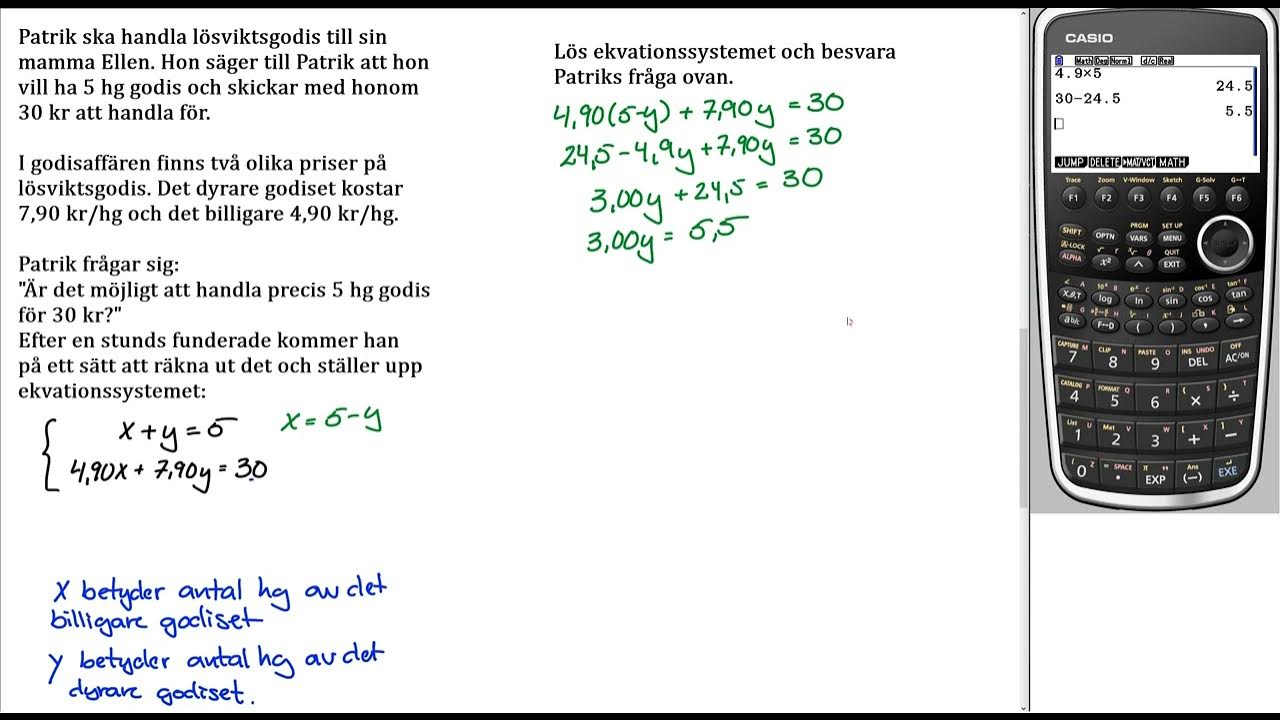 Patrik ska handla lösviktsgodis till sin
mamma Ellen. Hon säger till Patrik att hon
vill ha 5 hg godis och skickar med honom
30 kr att handla för.
I godisaffären finns två olika priser på
lösviktsgodis. Det dyrare godiset kostar
7,90 kr/hg och det billigare 4,90 kr/hg.
Patrik frågar sig:
"Är det möjligt att handla precis 5 hg godis
för 30 kr?"
Efter en stunds funderade kommer han
på ett sätt att räkna ut det och ställer upp
ekvationssystemet:
x+y=5
x=5-y
4,90x+7,90y=30
x betyder antal hg av det
billigare godiset
y betyder antal hg av det
dyrare godiset.
Lös ekvationssystemet och besvara
Patriks fråga ovan.
4,90(5-y)+7,90y=30
24,5-4,9y+7,90y=30
3,00y+24,5=30
3,00y=5,5
CASIO
Math Deg Norm1 d/c Real
4.9×5
24.5
30-24.5
5.5
JUMP DELETE ▶MAT/VCT MATH
Trace Zoom V-Window Sketch G-Solv G↔T
F1 F2 F3 F4 F5 F6
PRGM SET UP
SHIFT OPTN VARS MENU
A-LOCK QUIT
ALPHA x² ^ EXIT
X,θ,T log ln sin cos tan
a b/c F↔D ( ) , →
CAPTURE M CLIP N PASTE O INS UNDO OFF
7 8 9 DEL AC/ON
CATALOG P FORMAT Q R { S } T
4 5 6 × ÷
List U Mat V W [ X ] Y
1 2 3 + −
i Z = SPACE π " Ans
0 . EXP (−) EXE